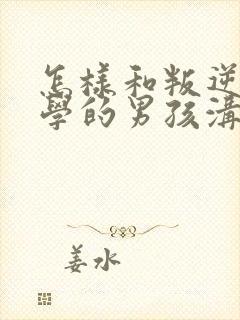 怎樣和叛逆
學的男孩溝
姜水